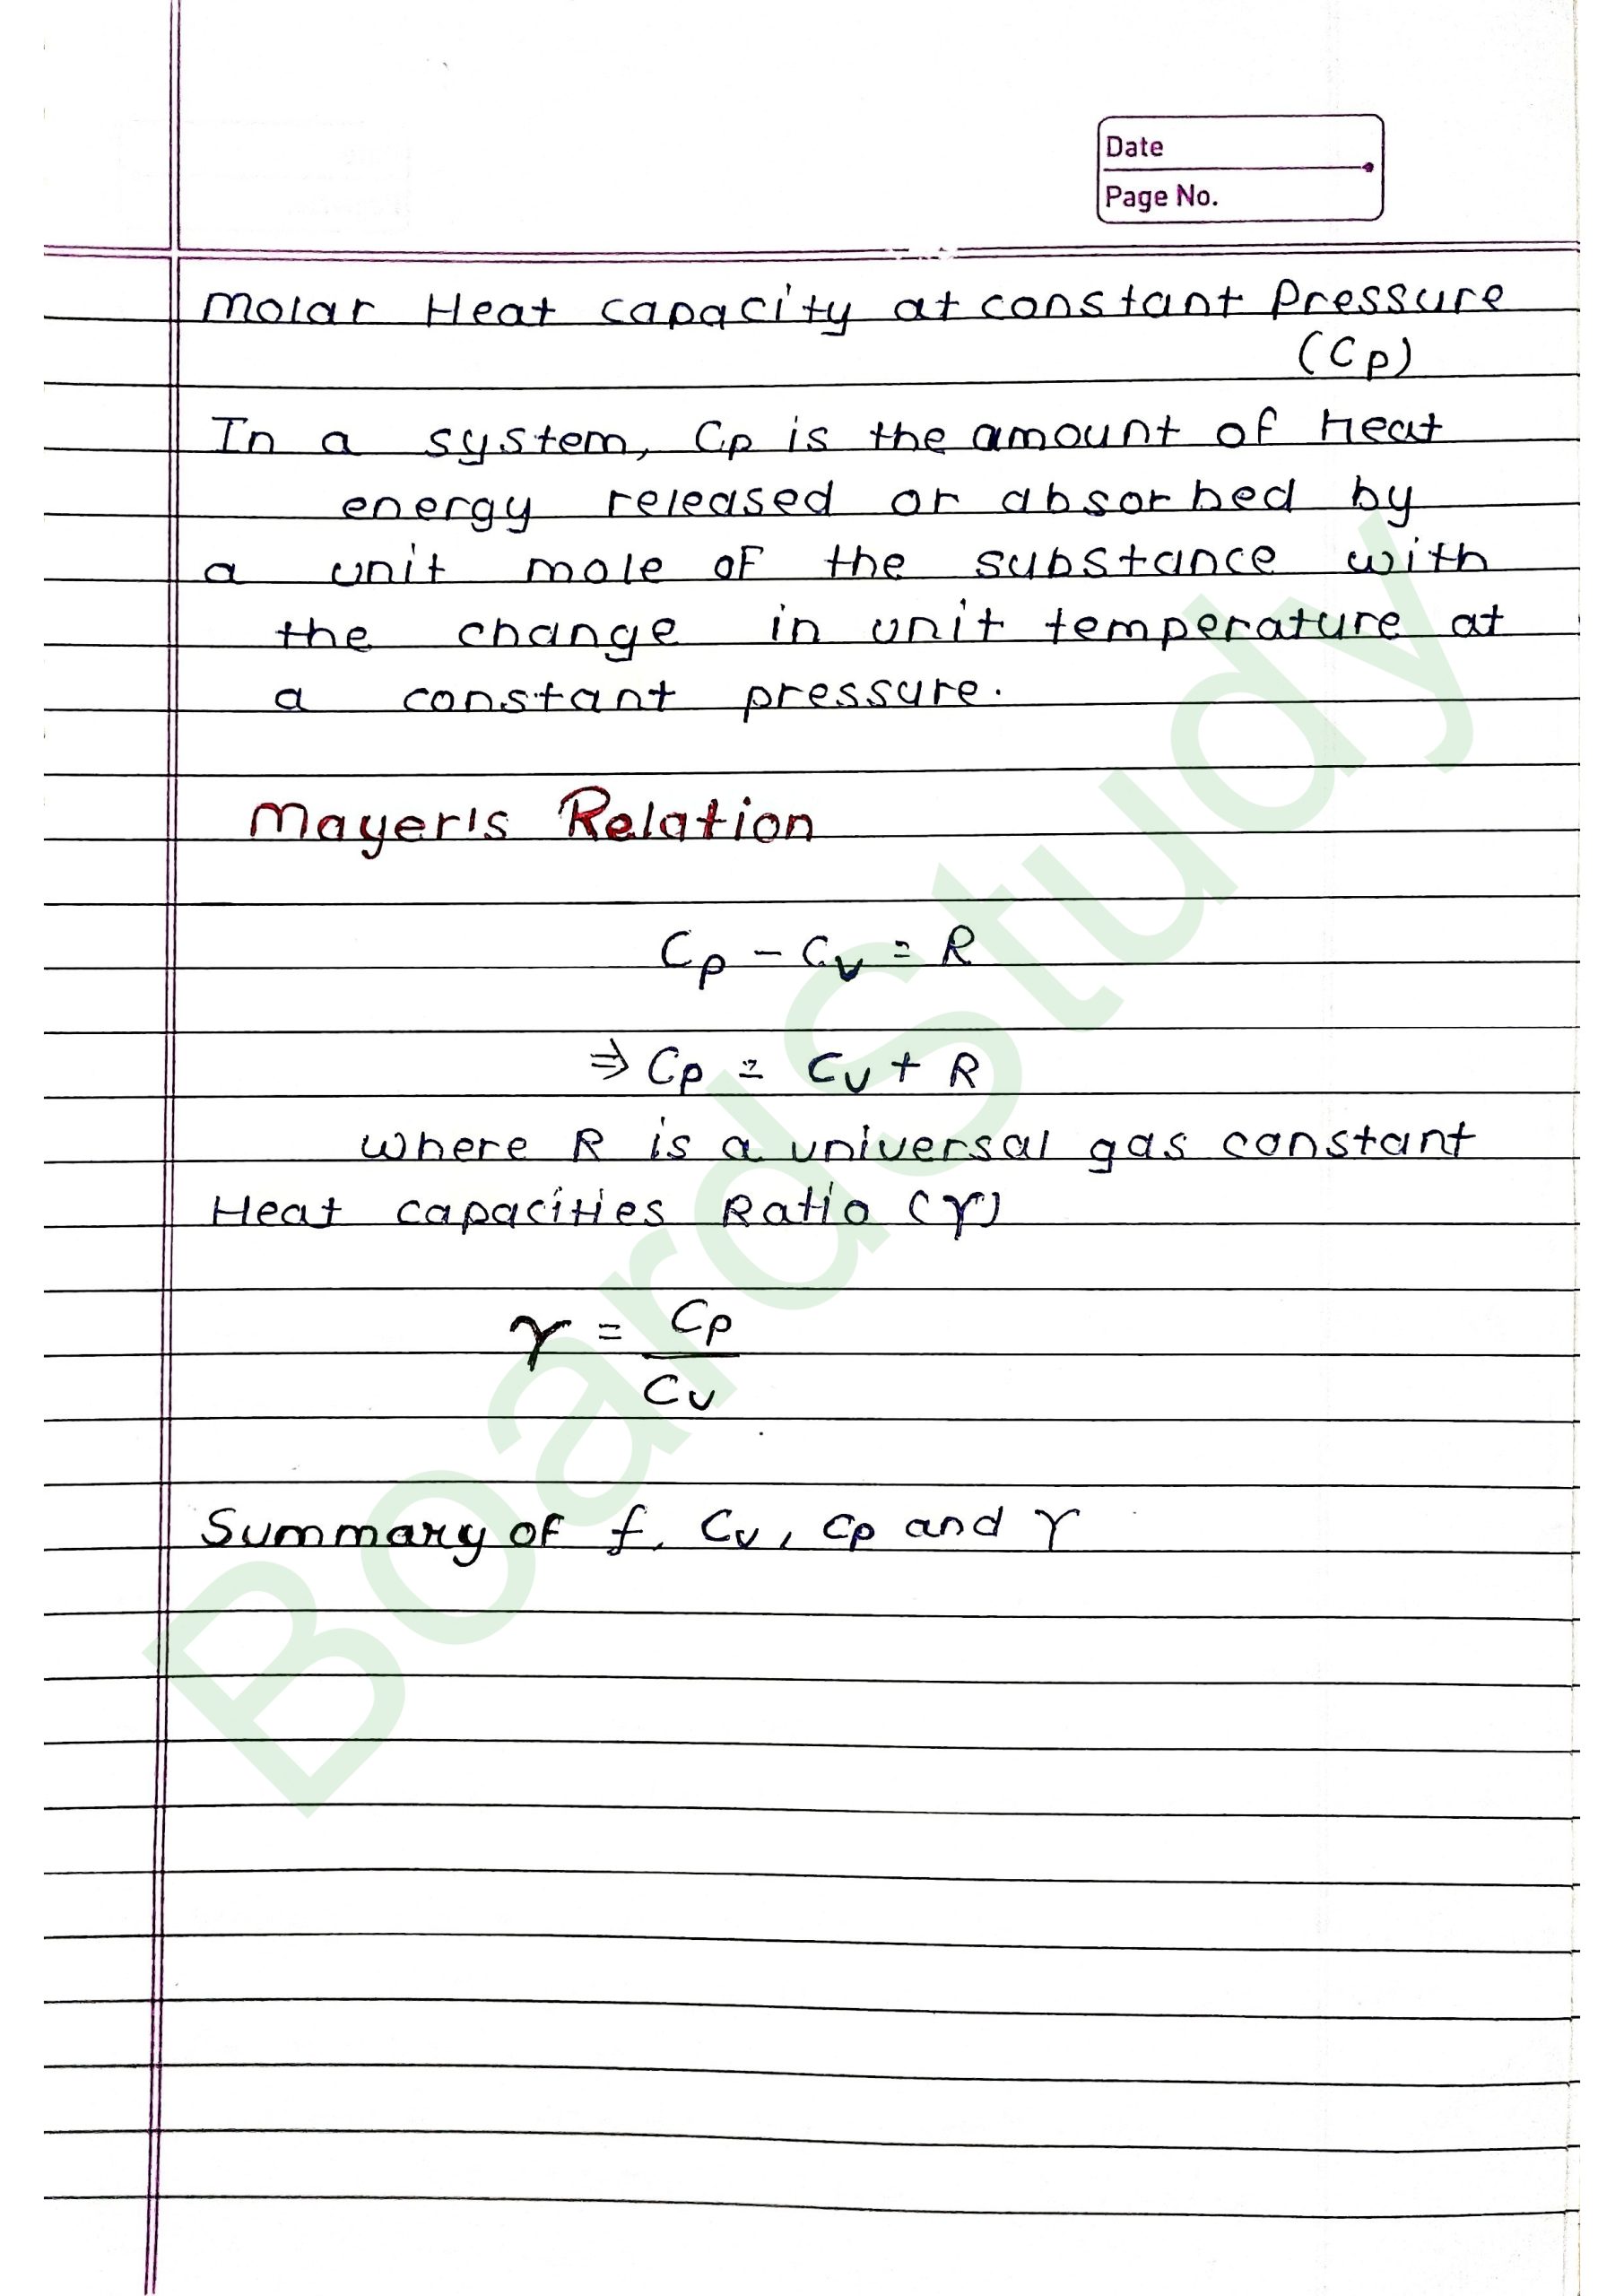 Date
Page No.
Molar Heat capacity at constant Pressure
(Cp)
In a system, Cp is the amount of heat
energy released or absorbed by
a unit mole of the substance with
the change in unit temperature at
a constant pressure.
Mayer's Relation
Cp - Cv = R
⇒ Cp = Cv + R
where R is a universal gas constant
Heat capacities Ratio (γ)
γ = Cp
Cv
Summary of f, Cv, Cp and γ
BoardStudy